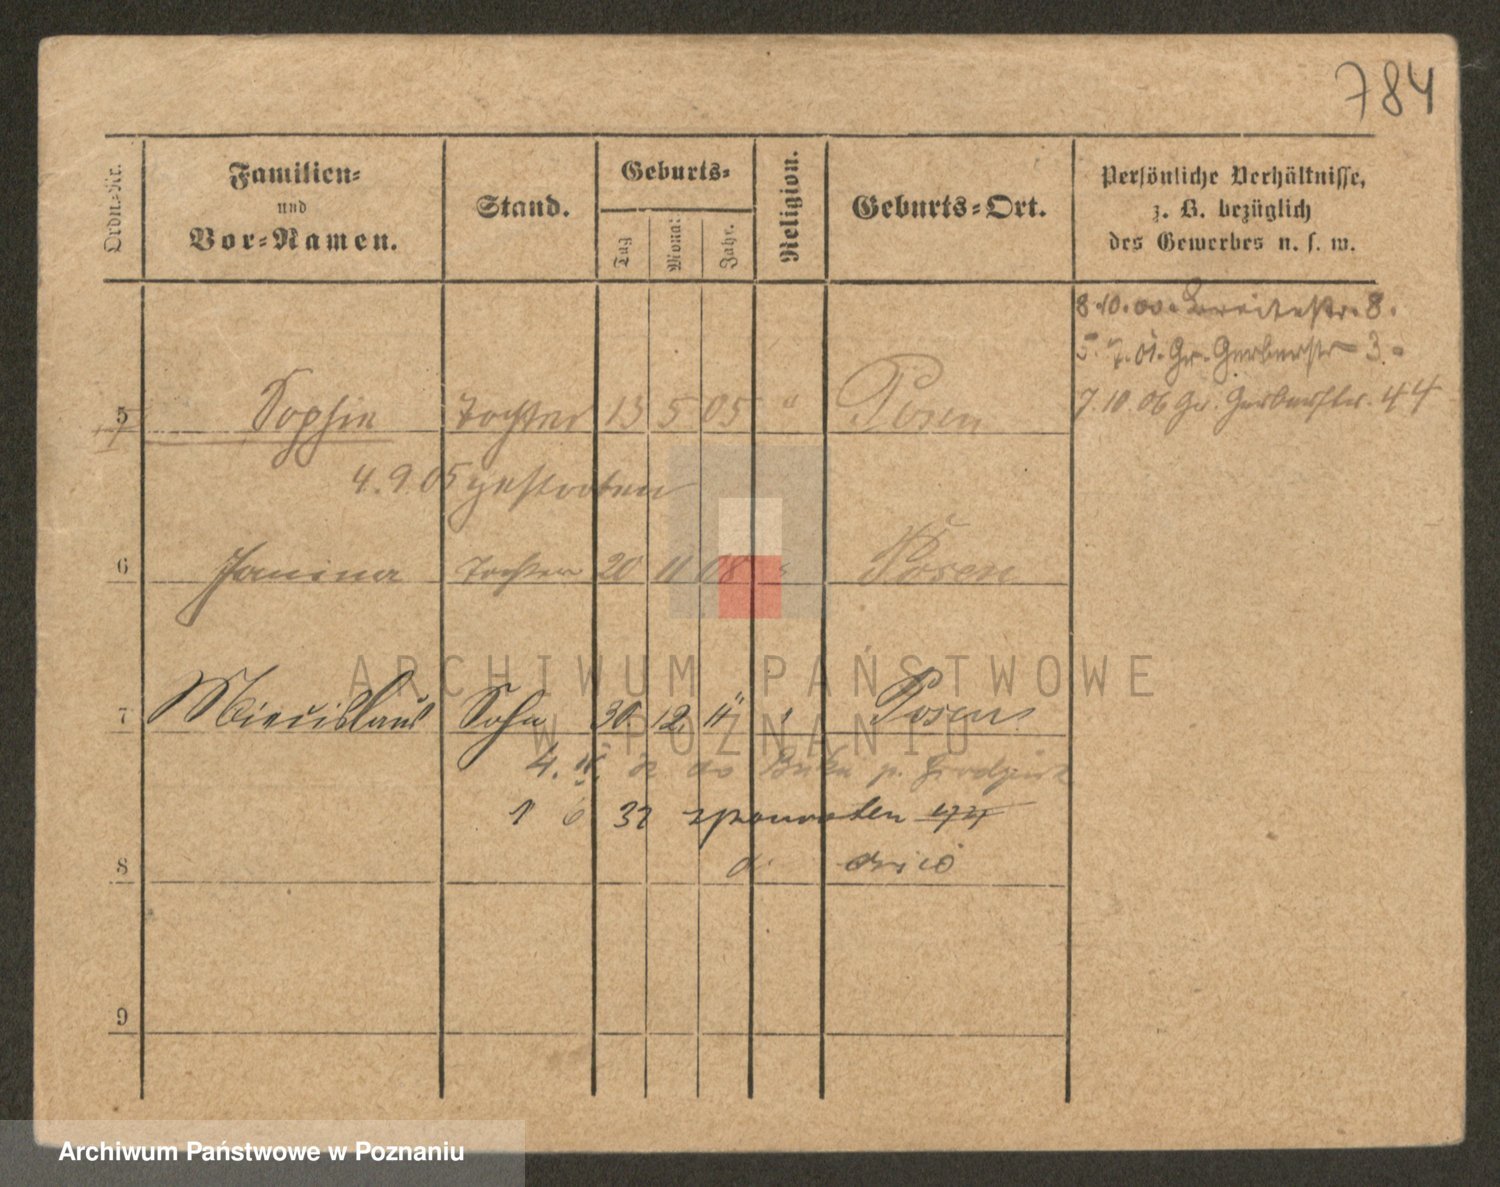 784
Ordn.-Nr.
Familien-
und
Vor-Namen.
Stand.
Geburts-
Tag
Monat
Jahr.
Religion.
Geburts-Ort.
Persönliche Verhältnisse,
z. B. bezüglich
des Gewerbes u. s. w.
8.10.00. Breitestr. 8.
5.7.01. Gr. Gerberstr 3.
7.10.06 Gr. Gerberstr. 44
5 Sophie Tochter 13 5 05 " Posen
4.9.05 gestorben
6 Janina Tochter 20 11 08 " Posen
7 Miecislaus Sohn 30 12 11 " Posen
4. IV. do Buku p. Grodzisk
1 6 32
8
9
ARCHIWUM PAŃSTWOWE
W POZNANIU
Archiwum Państwowe w Poznaniu